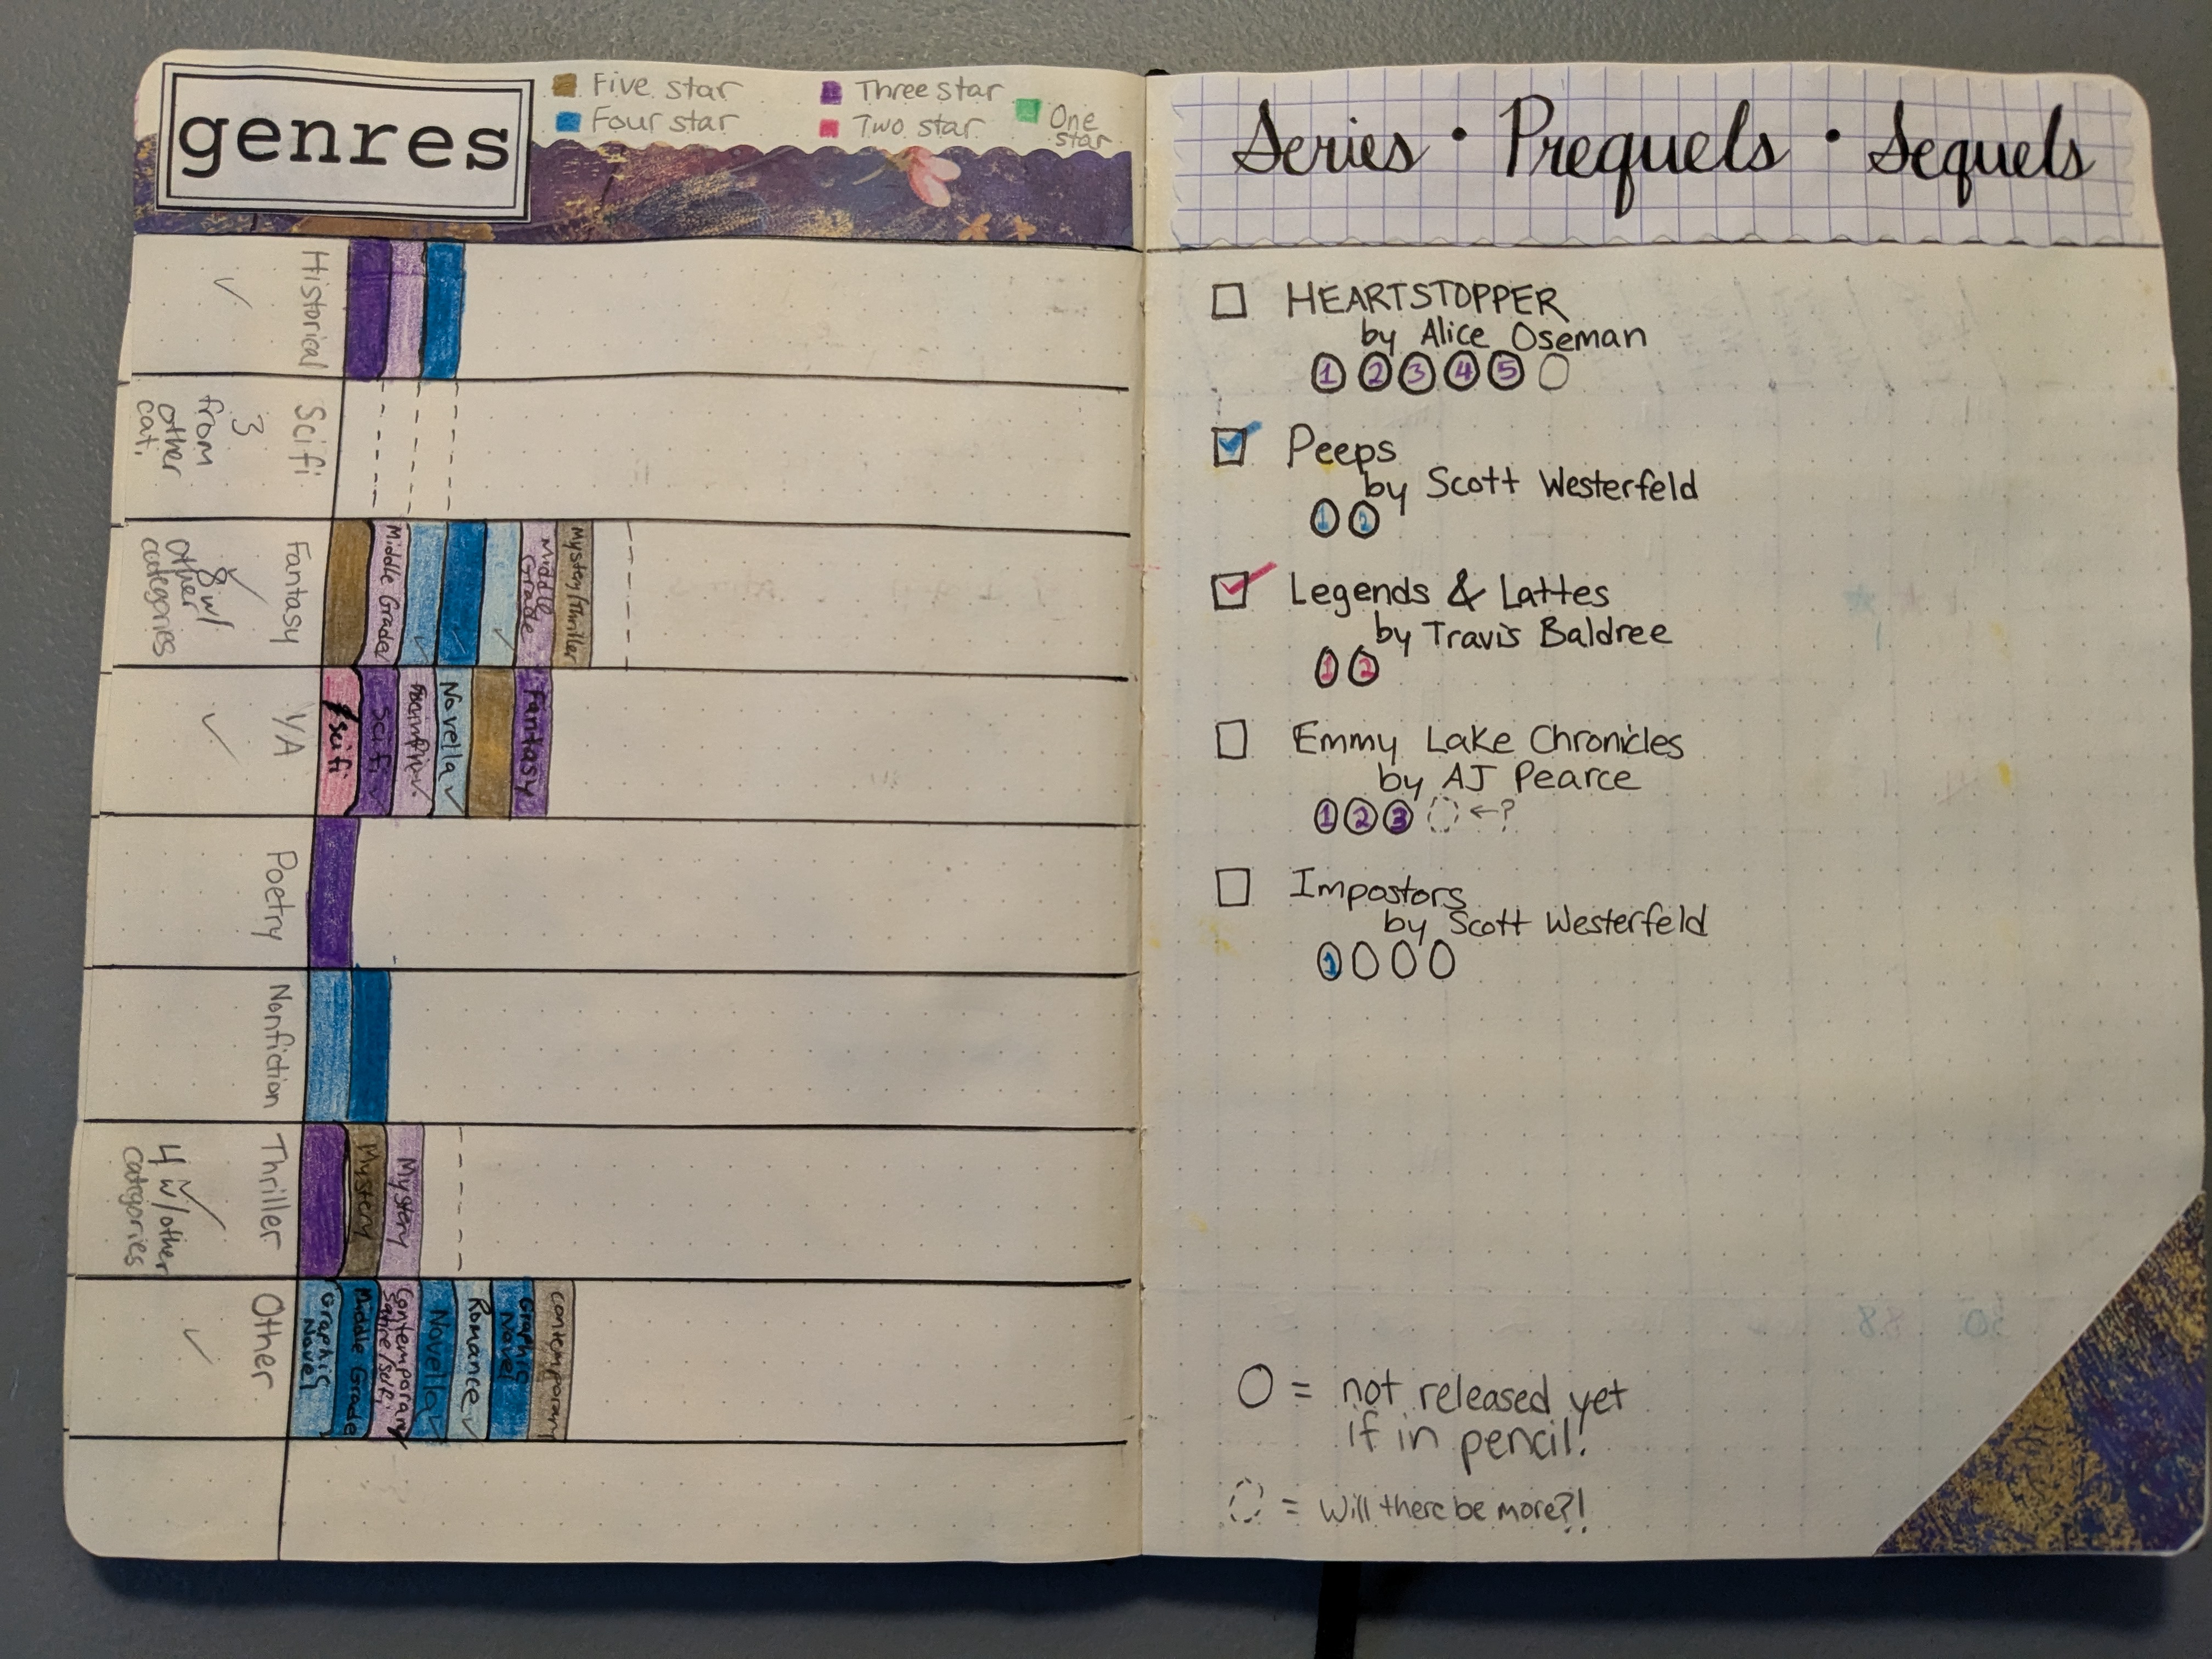 genres
Five star
Four star
Three star
Two star
One
star
Historical
Sci fi
3
from
other
cat.
Fantasy
8 w/
other
categories
Middle Grade
Middle
Grade
Mystery/Thriller
Y/A
sci fi
sci fi
Novella
Fantasy
Poetry
Nonfiction
Thriller
4 w/other
categories
Mystery
Mystery
Other
Graphic
Novel
Middle Grade
Contemporary
satire/scifi
Novella
Romance
Graphic
Novel
contemporary
Series • Prequels • Sequels
HEARTSTOPPER
by Alice Oseman
1 2 3 4 5
Peeps
by Scott Westerfeld
1 2
Legends & Lattes
by Travis Baldree
1 2
Emmy Lake Chronicles
by AJ Pearce
1 2 3 ←?
Impostors
by Scott Westerfeld
1
= not released yet
if in pencil!
= Will there be more?!